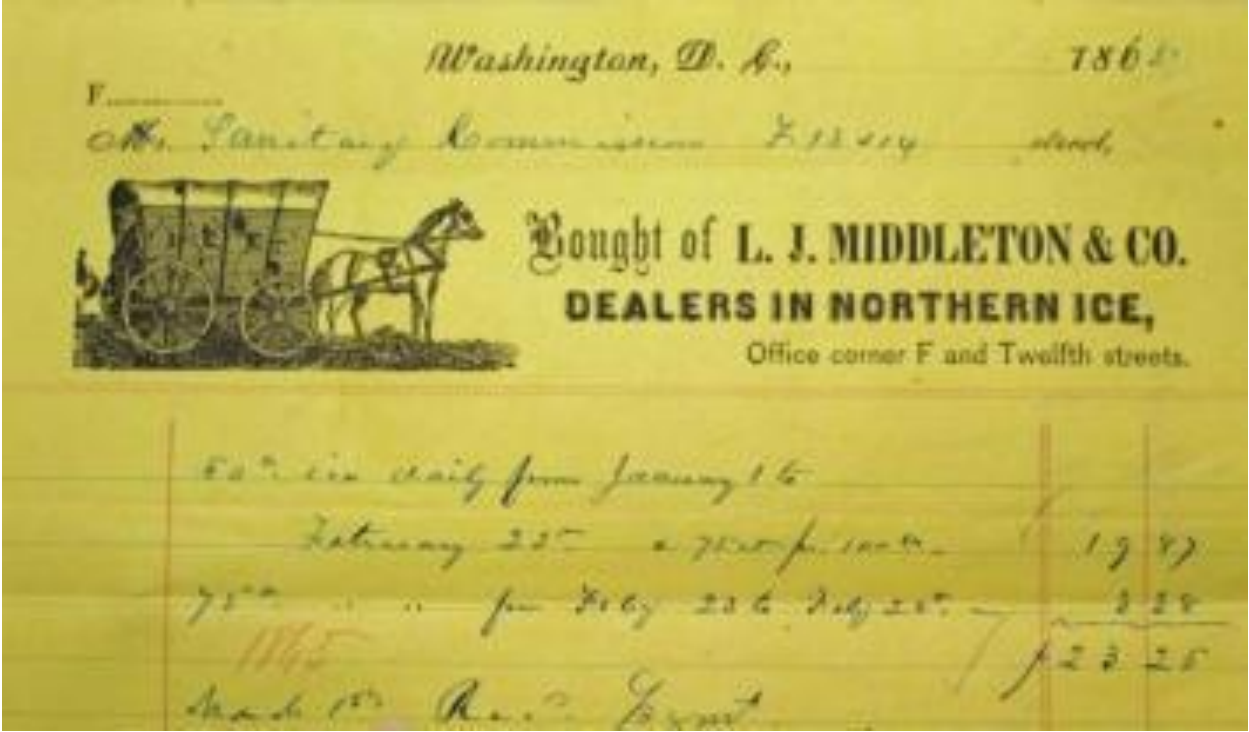 Washington, D. C., 1865
F
M Sanitary Commission F 13 & 14 street,
ICE
Bought of L. J. MIDDLETON & CO.
DEALERS IN NORTHERN ICE,
Office corner F and Twelfth streets.
50 ice daily from January 1 to
February 22 a 75 ct pr 100 19 87
75 " " from Feby 23 to Feby 28 3 28
1865 $23 25
March 1st Rec Pymt